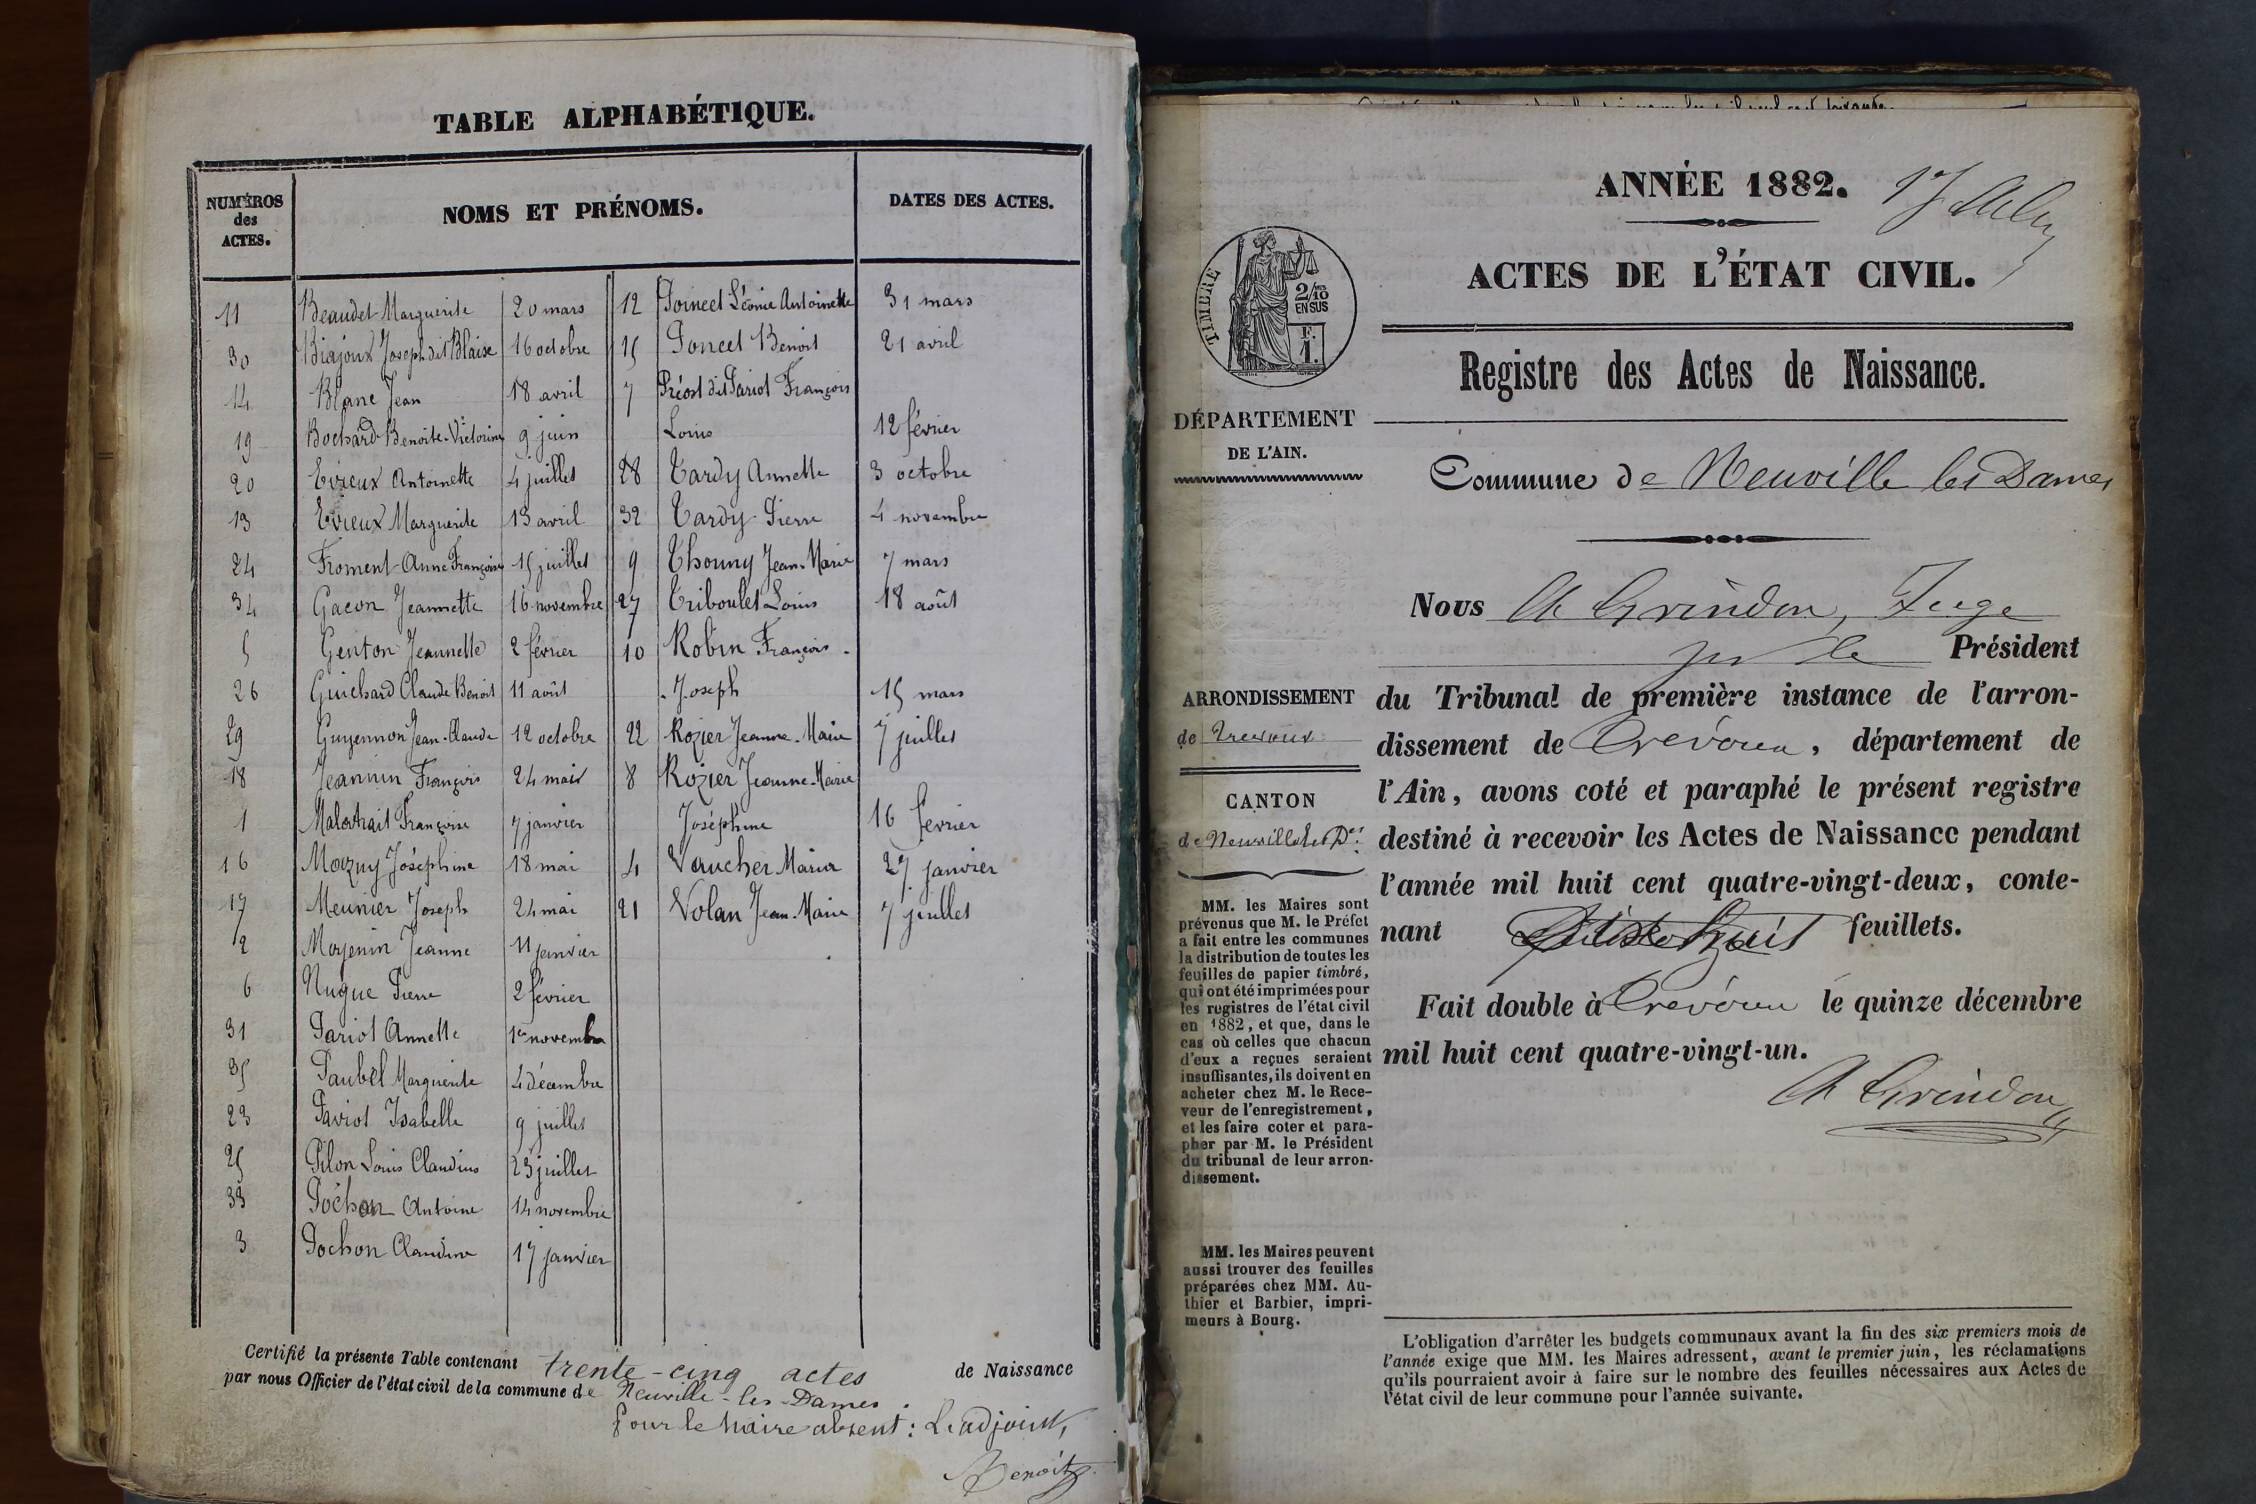 TABLE ALPHABÉTIQUE.
NUMÉROS des ACTES.
NOMS ET PRÉNOMS.
DATES DES ACTES.
11 Beaudet Marguerite 20 mars
30 Biajoux Joseph dit Blaise 16 octobre
14 Blanc Jean 18 avril
19 Bochard Benoite-Victorine 9 juin
20 Evieux Antoinette 4 juillet
13 Evieux Marguerite 13 avril
24 Froment Anne Françoise 15 juillet
34 Gacon Jeannette 16 novembre
5 Genton Jeannette 2 février
26 Guichard Claude Benoit 11 août
29 Guyennon Jean-Claude 12 octobre
18 Jeannin François 24 mai
1 Malatrait Françoise 7 janvier
16 Mazuy Joséphine 18 mai
17 Meunier Joseph 24 mai
2 Moyenin Jeanne 11 janvier
6 Nugue Pierre 2 février
31 Pariot Annette 1er novembre
35 Paubel Marguerite 4 décembre
23 Paviot Isabelle 9 juillet
25 Pilon Louis Claudius 23 juillet
33 Pochon Antoine 14 novembre
3 Pochon Claudine 17 janvier
12 Poncet Léonie Antoinette 31 mars
15 Poncet Benoit 21 avril
7 Préost dit Pariot François
Louis 12 février
28 Tardy Annette 3 octobre
32 Tardy Pierre 4 novembre
9 Thouny Jean-Marie 7 mars
27 Triboulet Louis 18 août
10 Robin François
Joseph 15 mars
22 Rozier Jeanne-Marie 7 juillet
8 Rozier Jeanne-Marie
Joséphine 16 février
4 Vaucher Maria 27 janvier
21 Volan Jean-Marie 7 juillet
Certifié la présente Table contenant trente-cinq actes de Naissance
par nous Officier de l'état civil de la commune de Neuville-les-Dames.
Pour le Maire absent : L'adjoint,
Benoit
ANNÉE 1882.
ACTES DE L'ÉTAT CIVIL.
TIMBRE
2/10 EN SUS
F. 1.
Registre des Actes de Naissance.
DÉPARTEMENT
DE L'AIN.
Commune de Neuville les Dames
Nous A Grindon, Juge
pr le Président
ARRONDISSEMENT
de Trevoux
CANTON
de Neuville les Des
du Tribunal de première instance de l'arron-
dissement de Trévoux, département de
l'Ain, avons coté et paraphé le présent registre
destiné à recevoir les Actes de Naissance pendant
l'année mil huit cent quatre-vingt-deux, conte-
nant feuillets.
Fait double à Trévoux le quinze décembre
mil huit cent quatre-vingt-un.
A Grindon
MM. les Maires sont
prévenus que M. le Préfet
a fait entre les communes
la distribution de toutes les
feuilles de papier timbré,
qui ont été imprimées pour
les registres de l'état civil
en 1882, et que, dans le
cas où celles que chacun
d'eux a reçues seraient
insuffisantes, ils doivent en
acheter chez M. le Rece-
veur de l'enregistrement,
et les faire coter et para-
pher par M. le Président
du tribunal de leur arron-
dissement.
MM. les Maires peuvent
aussi trouver des feuilles
préparées chez MM. Au-
thier et Barbier, impri-
meurs à Bourg.
L'obligation d'arrêter les budgets communaux avant la fin des six premiers mois de
l'année exige que MM. les Maires adressent, avant le premier juin, les réclamations
qu'ils pourraient avoir à faire sur le nombre des feuilles nécessaires aux Actes de
l'état civil de leur commune pour l'année suivante.